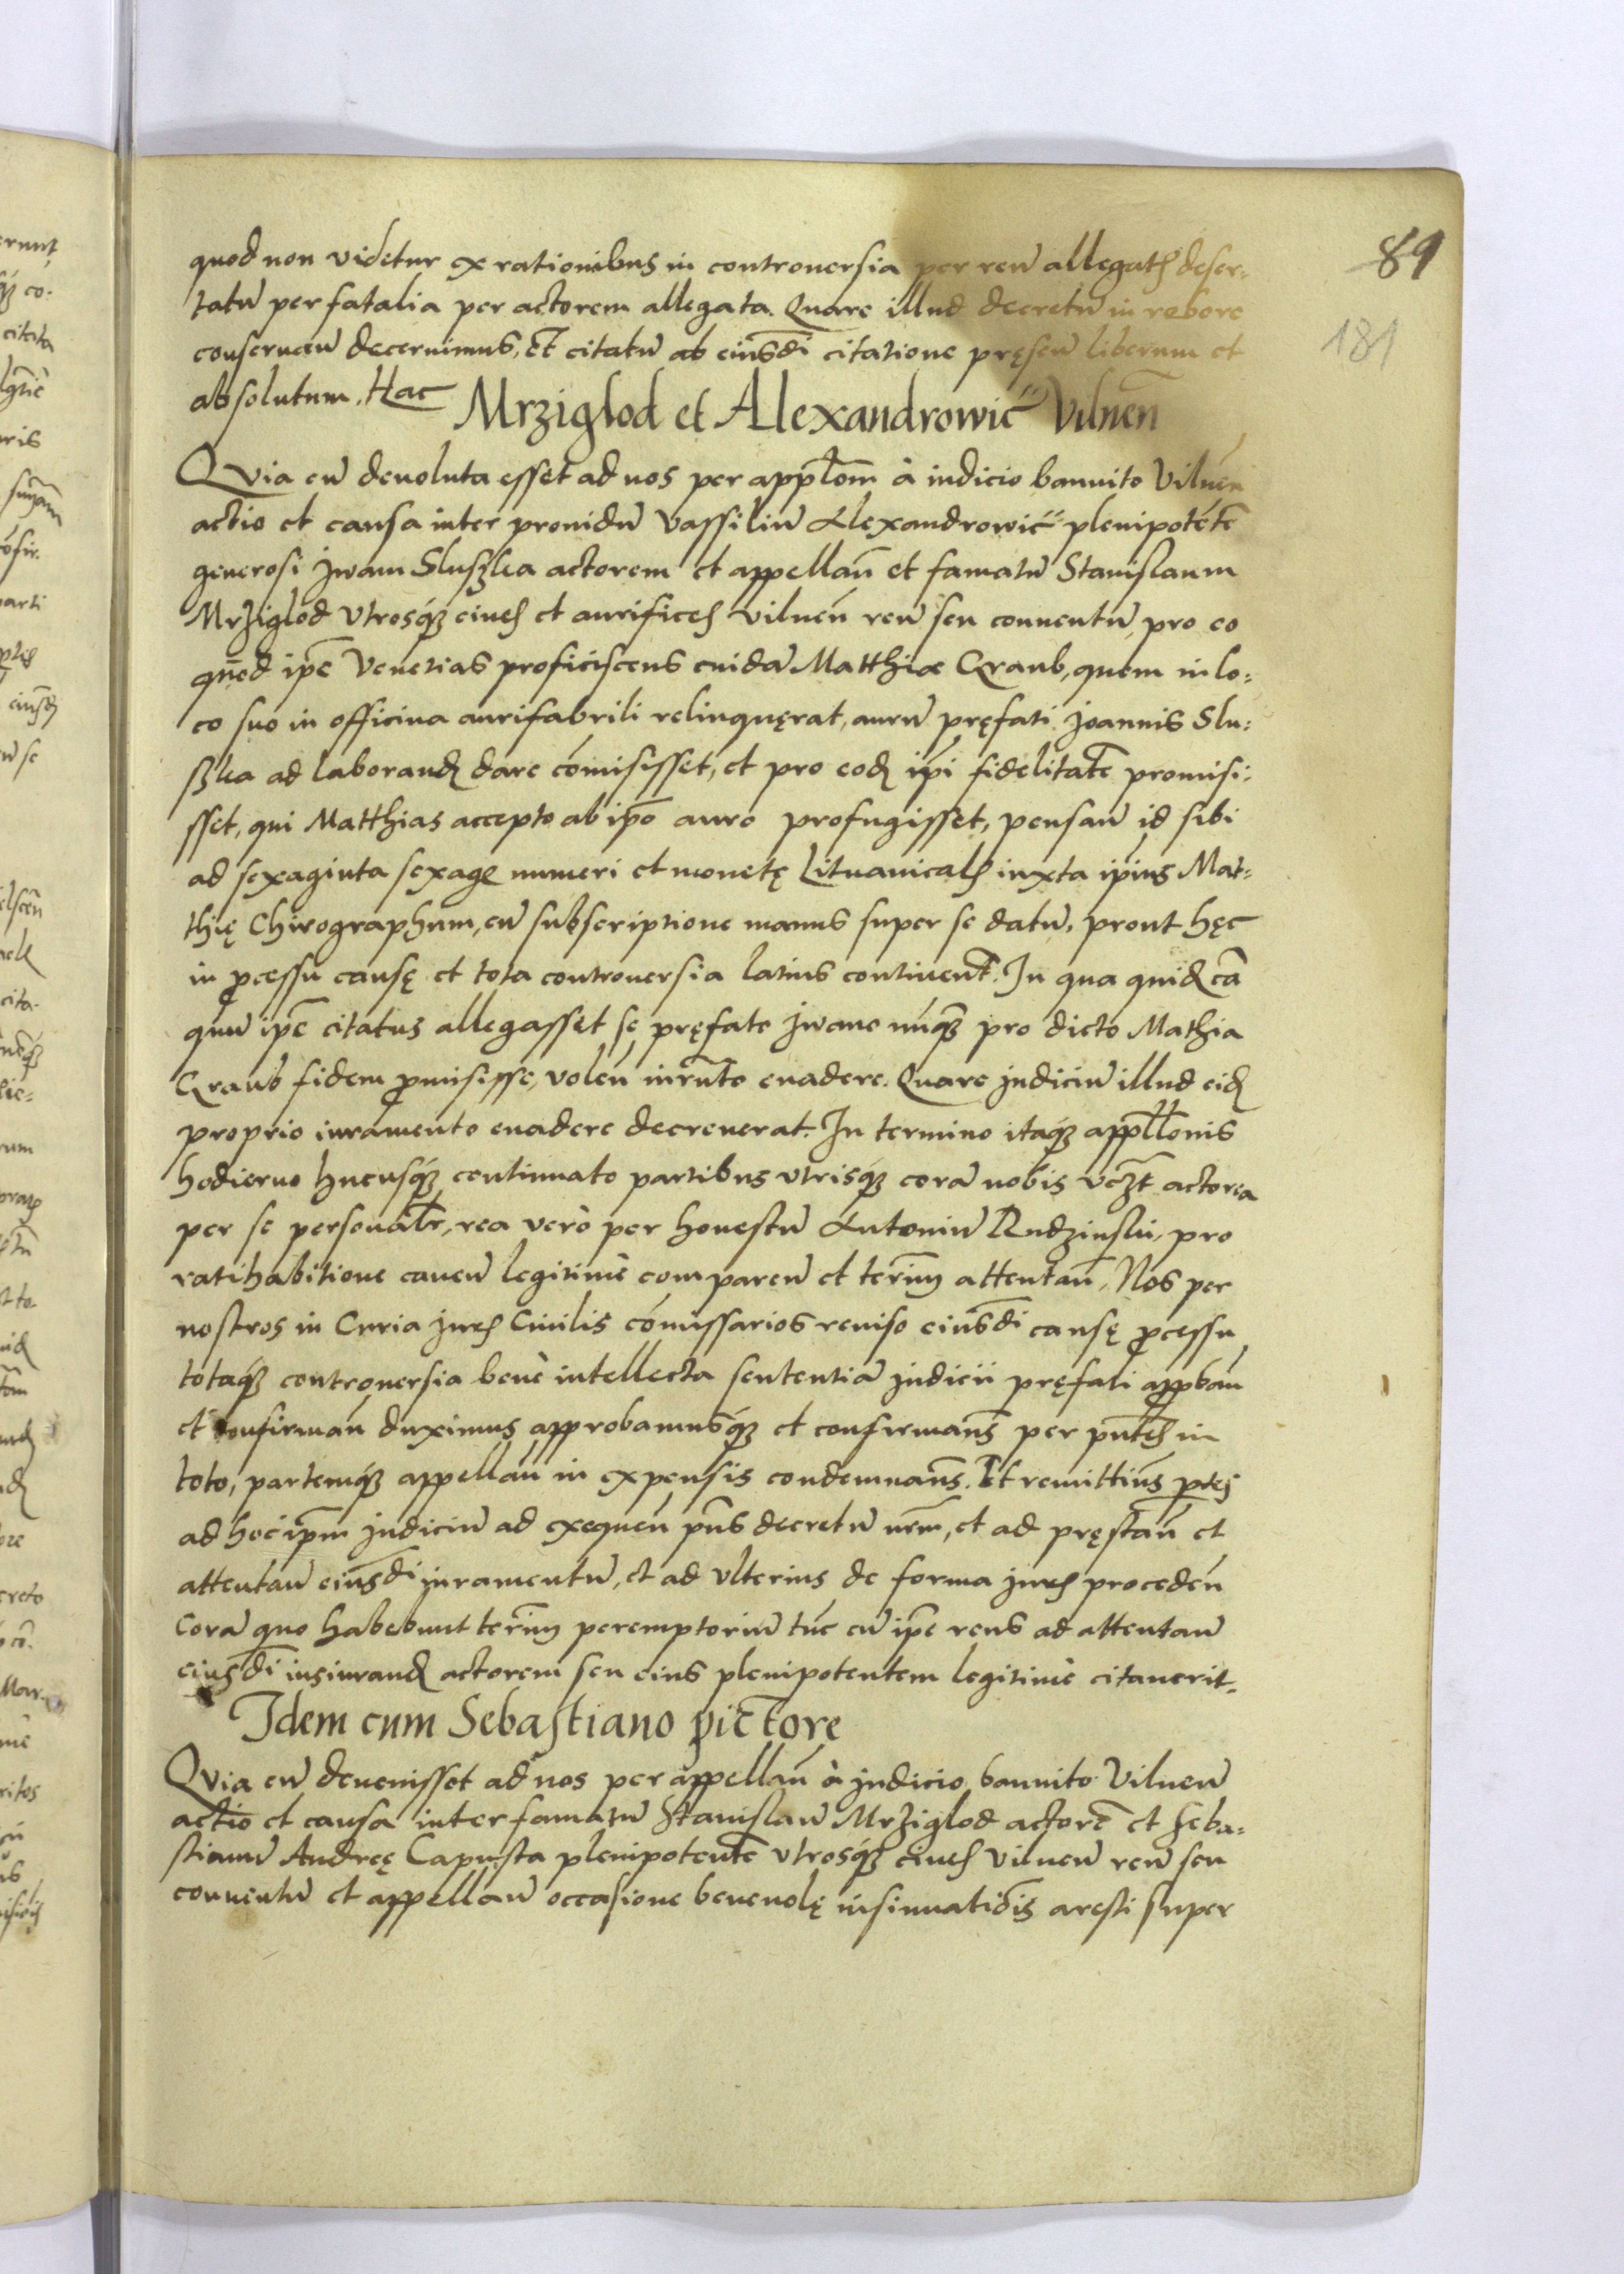 89
181
quod non videtur ex rationibus in controuersia per reū allegatis deser-
tatū per fatalia per actorem allegata. Quare illud decretū in robore
conseruan̄ decernimus, Et citatū ab eiusdi citatione pręsen̄ liberum et
absolutum. Hac
Mrziglod et Alexandrowic Vilnen̄
Qvia cū deuoluta esset ad nos per applōm à iudicio bannito Vilnen̄
actio et causa inter prouidū Vassiliū Alexandrowic plenipotētē
generosi Jwani Sluszka actorem et appellan̄ et famatū Stanislaum
Mrziglod vtrosq; ciues et aurifices Vilnen̄ reū seu conuentū, pro eo
quod ipē Venetias proficiscens cuidā Matthiæ Qraub, quem in lo-
co suo in officina aurifabrili relinquerat, aurū pręfati Joannis Slu-
szka ad laborand dare cōmisisset, et pro eod ipī fidelitatē promisi-
sset, qui Matthias accepto ab ipō auro profugisset, pensan̄ id sibi
ad sexaginta sexage numeri et monetę Lituanicalis iuxta ipīus Mat-
thię Chirographum, cū subscriptione manus super se datū, prout hęc
in pcessu causę et tota controuersia latius continent. In qua quid cā
quū ipē citatus allegasset se pręfato Jwano nūq; pro dicto Mathia
Qraub fidem pmisisse, volen̄ iurnto euadere. Quare judiciū illud eid
proprio iuramento euadere decreuerat. In termino itaq; appllonis
hodierno hucusq; continuato partibus vtrisq; corā nobis vczt actorea
per se personalr, rea verò per honestū Antoniū Rudzinski, pro
ratihabitione cauen̄ legitimè comparen̄ et termi attentan̄. Nos per
nostros in Curia juris Ciuilis cōmissarios reuiso eiusdi causę pcessu
totaq; controuersia benè intellecta sententiā judicii pręfati appban̄
et confirman̄ duximus approbamusq; et confirmams per pntes in
toto, partemq; appellan̄ in expensis condemnams. Et remittims ptes
ad hoc ipm judiciū ad exequen̄ pns decretū nrm, et ad pręstan̄ et
attentan̄ eiusdi juramentū, et ad vlterius de forma juris proceden̄
Corā quo habebunt termi peremptoriū tūc cū ipē reus ad attentan̄
eiusdi iusiurand actorem seu eius plenipotentem legitimè citauerit.
Idem cum Sebastiano pictore
Qvia cū deuenisset ad nos per appellan̄ à judicio bannito Vilnen̄
actio et causa inter famatū Stanislaū Mrziglod actorē et Seba-
stianū Andreę Capusta plenipotentē vtrosq; ciues Vilnen̄ reū seu
conuentū et appellan̄ occasione beneuolę insinuationis aresti super